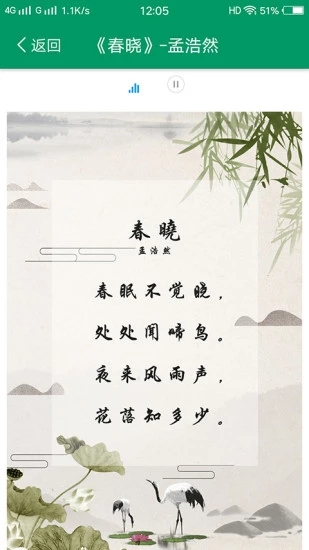 4G G 1.1K/s 12:05 HD 51%
返回 《春晓》-孟浩然
春曉
孟浩然
春眠不觉晓，
处处闻啼鸟。
夜来风雨声，
花落知多少。